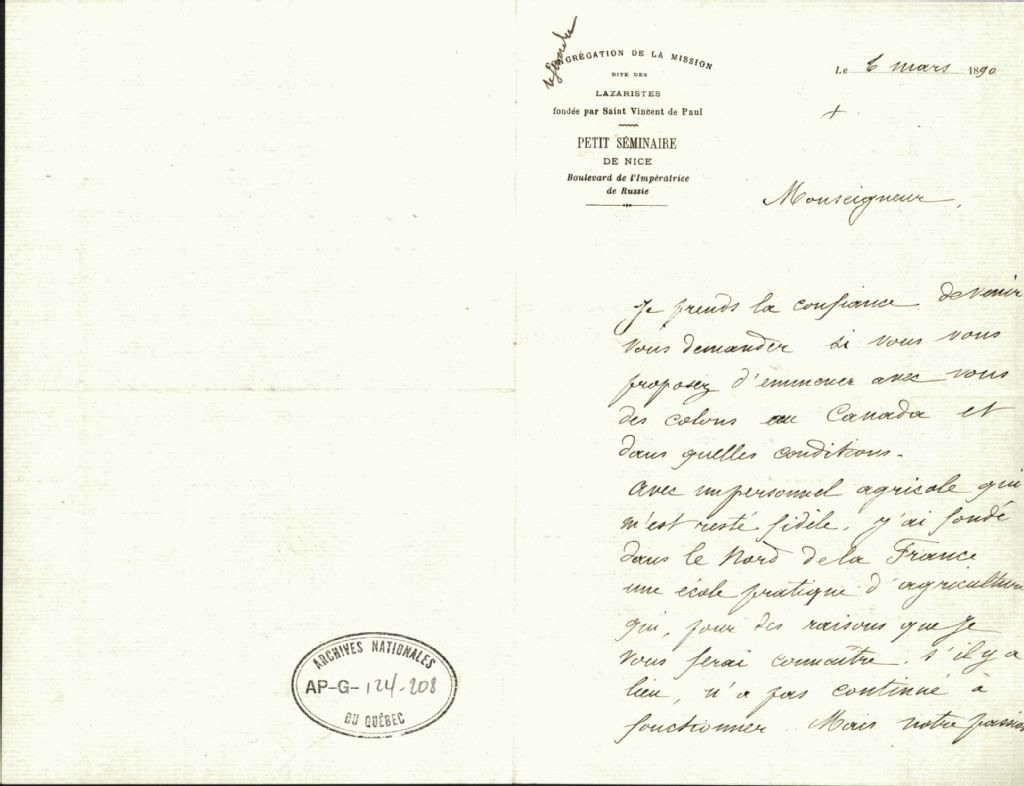 CONGRÉGATION DE LA MISSION
DITE DES
LAZARISTES
fondée par Saint Vincent de Paul
PETIT SÉMINAIRE
DE NICE
Boulevard de l'Impératrice
de Russie
Le 6 mars 1890
+
Monseigneur,
Je prends la confiance de venir
vous demander si vous vous
proposez d'emmener avec vous
des colons au Canada et
dans quelles conditions.
Avec un personnel agricole qui
m'est resté fidèle, j'ai fondé
dans le Nord de la France
une école pratique d'agriculture
qui, pour des raisons que je
vous ferai connaître, s'il y a
lieu, n'a pas continué à
fonctionner. Mais notre
ARCHIVES NATIONALES
AP-G-124-208
DU QUÉBEC